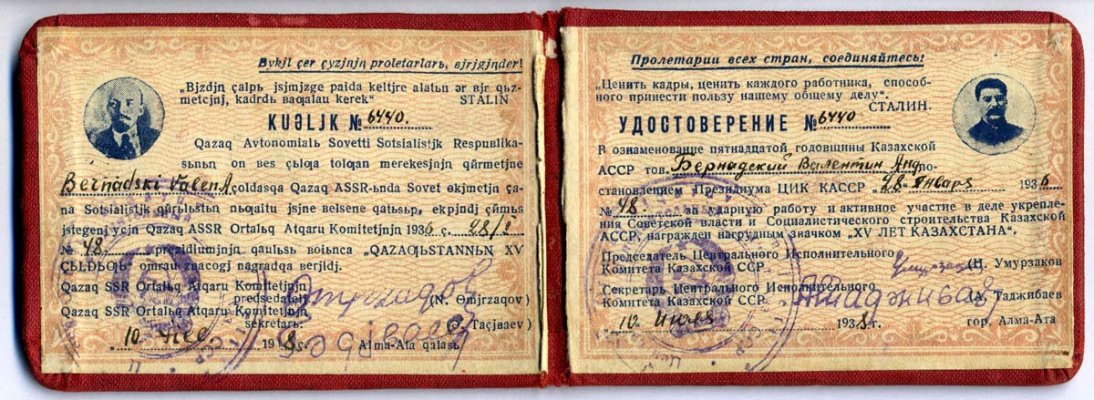 Bykjl çer çyzjnjn proletarlarь, вjrjgjnder!
„Bjzdjn çalpь jsjmjzge paida keltjre alatьn ər вjr qьz-
metçjnj, kadrdь baqalau kerek“
STALIN
KUƏLJK № 6440.
Qazaq Avtonomialь Sovettj Sotsialistjk Respuвlika-
sьnьn on вes çьlqa tolqan merekesjnjn qūrmetjne
Bernadski Valen A çoldasqa Qazaq ASSR-ьnda Sovet ɵkjmetjn ça-
na Sotsialistjk qūrьlьstьn nьqaitu jsjne вelsene qatьsьp, ekpjndj çūmьs
jstegenj ycjn Qazaq ASSR Ortalьq Atqaru Komitetjnjn 1936 ç. 28/I
№ 48 prezidiumьnjn qaulьsь вoiьnca „QAZAQЬSTANNЬN XV
ÇЬLDЬQЬ“ omrau znacogj nagradqa вerjldj.
Qazaq SSR Ortalьq Atqaru Komitetjnjn
predsedatelj (N. Ɵmjrzaqov)
Qazaq SSR Ortalьq Atqaru Komitetjnjn
sekretarь: Taçjвaev)
10 1938 ç. Alma-Ata qalasь
Пролетарии всех стран, соединяйтесь!
„Ценить кадры, ценить каждого работника, способ-
ного принести пользу нашему общему делу“.
СТАЛИН.
УДОСТОВЕРЕНИЕ № 6440
В ознаменование пятнадцатой годовщины Казахской
АССР тов. Бернадский Валентин Анд по-
становлением Президиума ЦИК КАССР „28“ Января 1936
№ 48 за ударную работу и активное участие в деле укрепле-
ния Советской власти и Социалистического строительства Казахской
АССР, награжден нагрудным значком „XV ЛЕТ КАЗАХСТАНА“.
Председатель Центрального Исполнительного
Комитета Казахской ССР (Н. Умурзаков
Секретарь Центрального Исполнительного
Комитета Казахской ССР Таджибаев
„10“ Июля 1938 г. гор. Алма-Ата